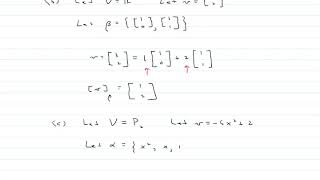 (b) Let V = ℝ Let v = [
Let β = { [1 0], [1 1] }
v = [3 2] = 1 [1 0] + 2 [1 1]
[v]β = [1 2]
(c) Let V = P₂ Let v = -4x² + 2
Let α = { x², x, 1